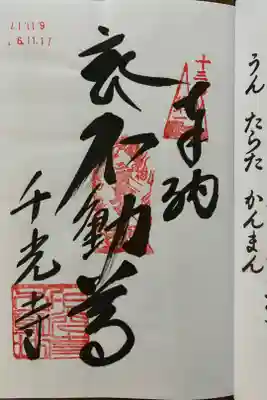 6.11.17
十三
奉納
不動尊
千光寺
うん たらた かんまん